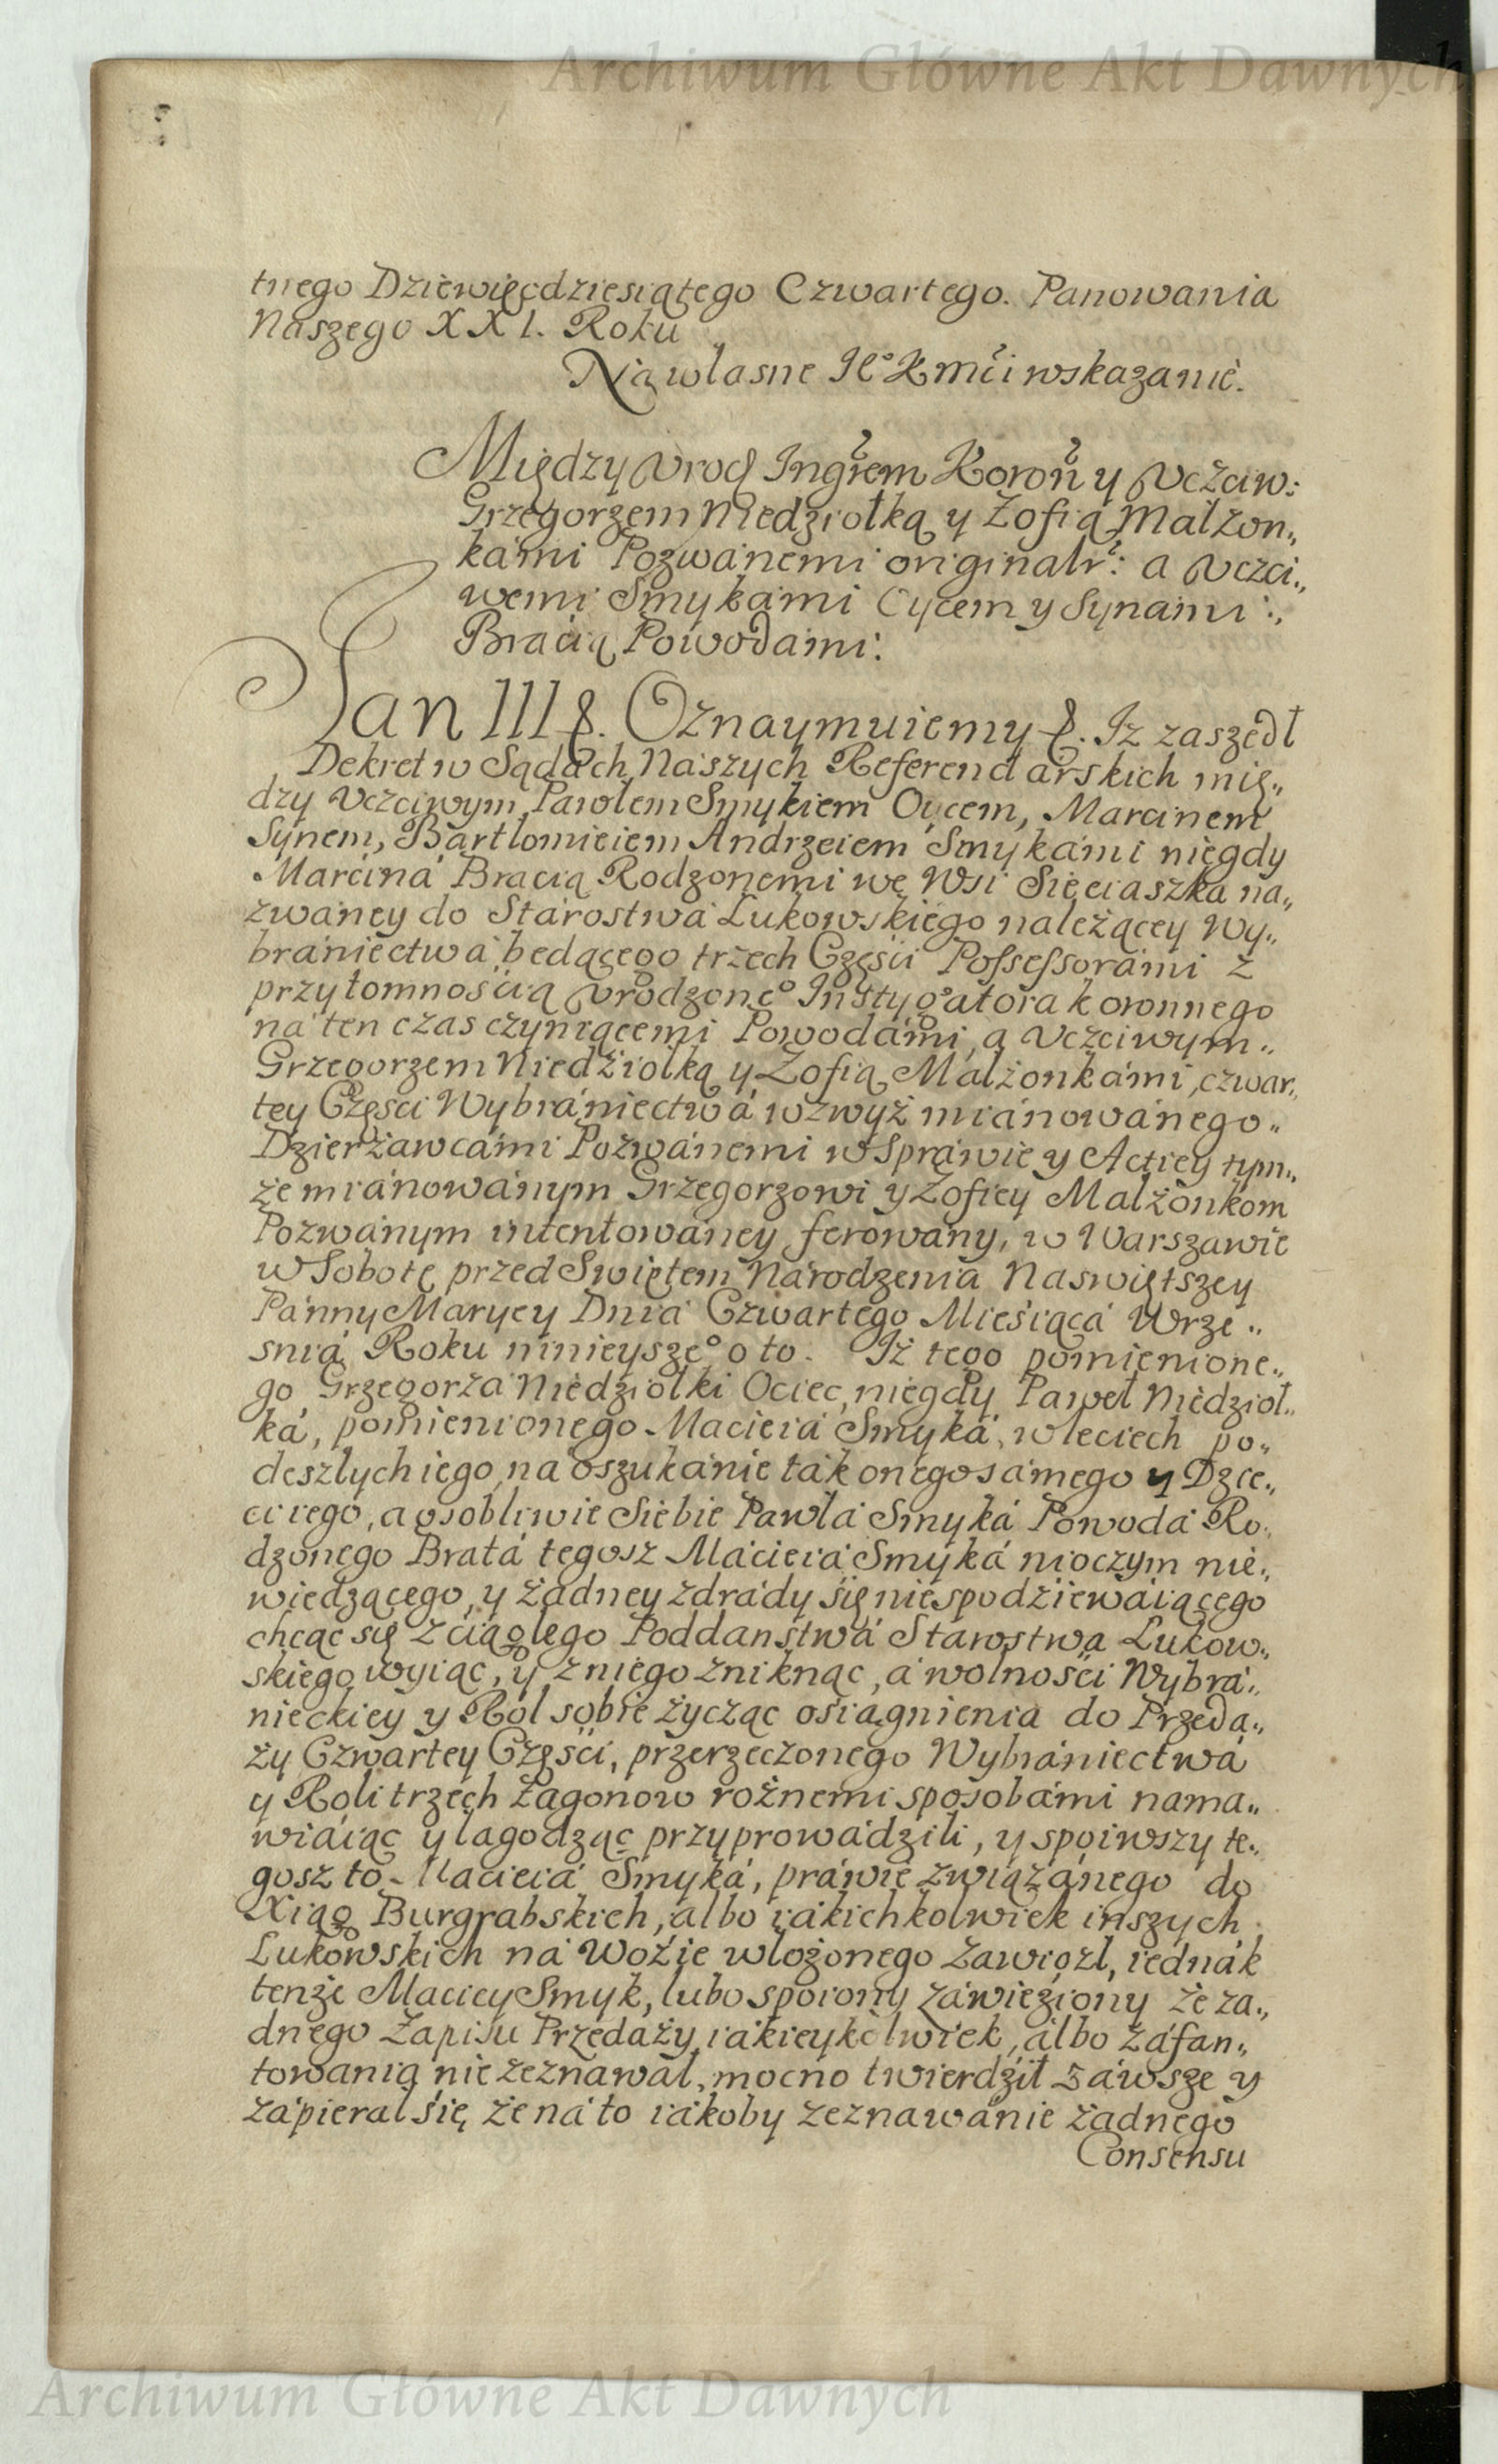 Archiwum Główne Akt Dawnych
tnego Dziewięcdziesiątego Czwartego. Panowania
Naszego XXI. Roku
Na własne Je° K mci wskazanie.
Między Urod Ingrem Koron y Uczciw:
Grzegorzem Niedziołką y Zofią Małzon„
kámi Pozwánemi originalr: a Uczci„
wemi Smykámi Oycem y Synami :,
Bracią Powodami:
Jan III &. Oznaymuiemy &. Iz zaszedł
Dekret w Sądách Nászych Referendarskich mię„
dzy Uczciwym Pawłem Smykiem Oycem, Marcinem
Synem, Bartłomieiem Andrzeiem Smykámi niegdy
Marciná Bracią Rodzonemi we Wsi Sięciaszka na„
zwáney do Stárostwá Łukowskiego należącey Wy„
brániectwá będącego trzech Częsci Possessorámi z
przytomnością Urodzone° Instygatora koronnego
ná ten czas czyniącemi Powodámi, a Uczciwym„
Grzegorzem Niedziołką y Zofią Małżonkámi, czwar„
tey Częsci Wybrániectwá wzwyż miánowánego„
Dzierżawcámi Pozwánemi w Spráwie y Actiey tym„
że miánowánym Grzegorzowi y Zofiey Małżonkom
Pozwánym intentowáney ferowány, w Warszawie
w Sobotę przed Swiętem Národzenia Naswiętszey
Pánny Maryey Dniá Czwartego Miesiącá Wrze„
sniá Roku ninieysze° o to. Iż tego pomienione„
go Grzegorzá Niedziołki Ociec, niegdy Paweł Niedzioł„
ká, pomienionego Macieiá Smyká, w leciech po„
deszłych iego, na oszukánie ták onego sámego y Dzie„
ci iego, a osobliwie Siebie Pawłá Smyká Powodá Ro„
dzonego Bratá tegosz Macieiá Smyká nioczym nie„
wiedzącego, y żadney zdrády się niespodziewáiącego
chcąc się z ciągłego Poddanstwá Starostwa Łukow„
skiego wyiąc, y z niego zniknąc, a wolności Wybrá„
nieckiey y Rol sobie życząc osiągnienia do Przeda„
ży Czwartey Częsci, przerzeczonego Wybrániectwá
y Roli trzech Zagonow rożnemi sposobámi nama„
wiáiąc y łagodząc przyprowádzili, y spoiwszy te„
gosz to Macieiá Smyká, práwie związánego do
Xiąg Burgrabskich, álbo iákichkolwiek inszych
Łukowskich ná Wozie włożonego zawiozł, iednák
tenże Maciey Smyk, lubo spoiony záwieziony że ża„
dnego Zapisu Przedaży iákieykolwiek, álbo záfan„
towania nie zeznawał, mocno twierdził záwsze y
zápierał się, że ná to iákoby zeznawánie żadnego
Consensu
Archiwum Główne Akt Dawnych